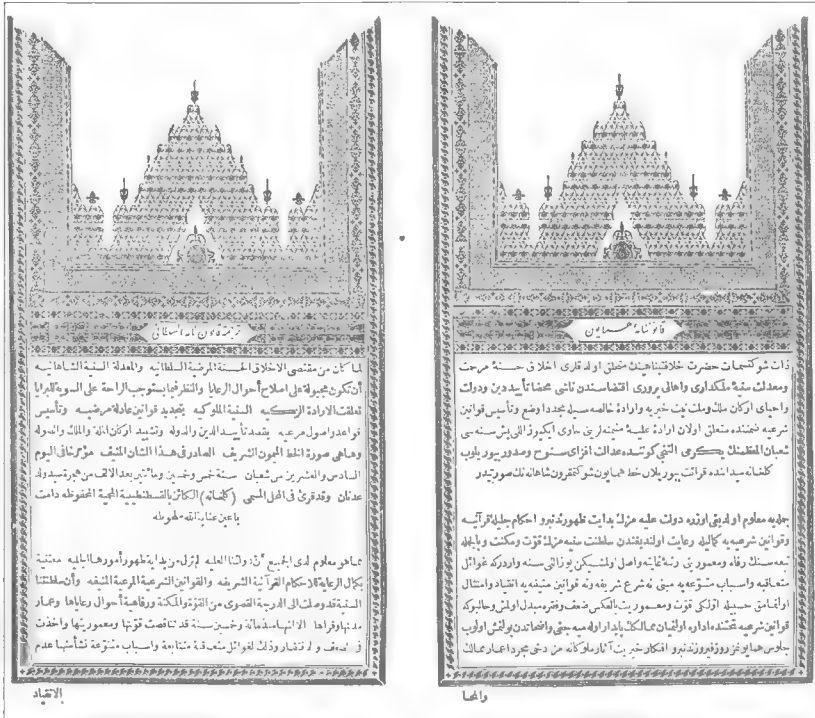 قانوننامهٔ همايون
ذات شوكتسمات حضرت خلافتپناهينك متعلق اولديغى اخلاق حسنهٔ مرحمت
ومعدلت سنيهٔ ملكدارى واهالى پرورى اقتضاسندن ناشى محضا تأييد دين ودولت
واحياى اركان ملك وملت نيت خيريه وارادهٔ خالصه سيله مجددا وضع وتأسيس قوانين
شرعيه ضمننده متعلق اولان ارادهٔ عليهٔ متيمنه لرينى حاوى ايكيوز اللى بش سنه سى
شعبان المعظمنك يكرمى التنجى كوننده عدالت افزاى سنوح وصدور بيوريلوب
كلخانه ميداننده قرائت بيوريلان خط همايون شوكتمقرون شاهانه نك صورتيدر
جمله يه معلوم اولديغى اوزره دولت عليه مزك بدايت ظهورندنبرو احكام جليلهٔ قرآنيه
وقوانين شرعيه يه كماليله رعايت اولنديغندن سلطنت سنيه مزك قوت ومكنت وبالجمله
تبعه سنك رفاه ومعموريتى رتبهٔ غايته واصل اولمشيكن يوز اللى سنه واردركه غوائل
متعاقبه واسباب متنوعه يه مبنى نه شرع شريفه ونه قوانين منيفه يه انقياد وامتثال
اولنمامق حسبيله اولكى قوت ومعموريت بالعكس ضعف وفقره مبدل اولمش وحالبوكه
قوانين شرعيه تحتنده اداره اولنميان ممالكك پايدار اوله ميه جغى واضحاتدن بولنمش اولوب
جلوس همايونمز روز فيروزندنبرو افكار خيريت آثار ملوكانه مز دخى مجرد اعمار ممالك
وانحا
ترجمة قانون نامه السلطانى
لما كان من مقتضى الاخلاق الحسنة المرضية السلطانيه والمعدلة السنية الشاهانيه
أن تكون مجبولة على اصلاح أحوال الرعايا والنظر فيما يستوجب الراحة على السوية للبرايا
تعلقت الارادة الزكيه السنية الملوكيه بتجديد قوانين عادلة مرضيه وتأسيس
قواعد واصول مرعيه بقصد تأييد الدين والدوله وتشييد اركان الملة والملك والصوله
وها هى صورة الخط الهميون الشريف الصادر فى هذا الشان المنيف مؤرخا فى اليوم
السادس والعشرين من شعبان سنة خمس وخمسين ومائتين بعد الالف من هجرة سيد ولد
عدنان وقد قرئ فى المحل المسمى (كلخانه) الكائن بالقسطنطينية المحمية المحفوظه دامت
باعين عناية الله ملحوظه
مما هو معلوم لدى الجميع أنّ دولتنا العليه لم تزل من بداية ظهور أمورها الجليه معتنية
بكمال الرعاية للاحكام القرآنية الشريفه والقوانين الشرعية المرعية المنيفه وأن سلطنتنا
السنية قد وصلت الى الدرجة القصوى من القوة والمكنة ورفاهية أحوال رعاياها وعمار
مدنها وقراها الا انها منذ مائة وخمسين سنة قد تناقصت قوتها ومعموريتها واخذت
فى الضعف والافتقار وذلك لغوائل متعاقبة متتابعة واسباب متنوعة نشأ منها عدم
الانقياد